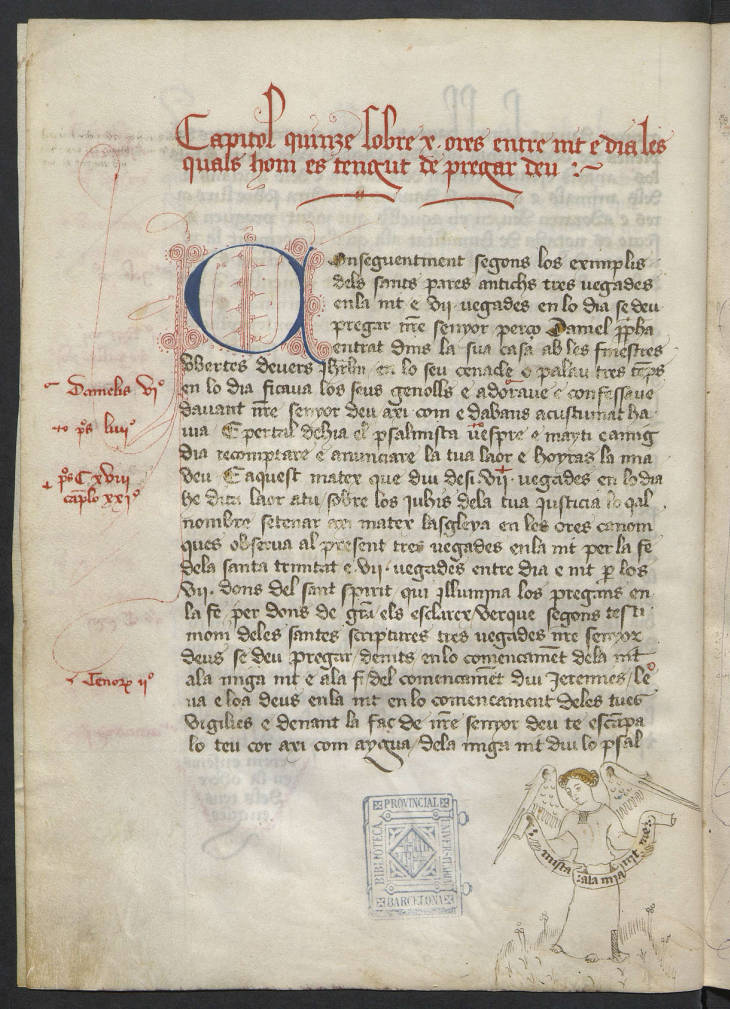 Capitol quinze sobre x ores entre nit e dia les
quals hom es tengut de pregar deu
Onseguentment segons los eximplis
dels sants pares antichs tres vegades
en la nit e vii vegades en lo dia se deu
pregar nre senyor perço Daniel ppha
entrat dins la sua casa ab les finestres
vbertes devers Jhrlm en lo seu cenacle o palau tres tēps
en lo dia ficaua los seus genolls e adoraue e confessaue
dauant nre senyor deu axi com e dabans acustumat ha
uia E per tal dehia el psalmista vespre e mayti e amig
dia recomptare e anunciare la tua laor e hoyras la mia
veu E aquest matex que diu desi vij vegades en lo dia
he dita laor atu sobre los iuhis dela tua iusticia lo qal
nombre setenar axi matex lasgleya en les ores canoni
ques obserua al present tres vegades en la nit per la fe
dela santa trinitat e vii vegades entre dia e nit p los
vii dons del sant spirit qui illumina los pregans en
la fe per dons de gra els esclarex verque segons testi
moni deles santes scriptures tres vegades nre senyor
deus se deu pregar de nits en lo comencamēt dela nit
ala miga nit e ala fi del comencamēt diu Jeremies le
ua e loa deus en la nit en lo comencament deles tues
vigilies e denant la faç de nre senyor deu te escāpa
lo teu cor axi com aygua dela miga nit diu lo psal
Danielis vi°
ps liiii°
ps C xviii
caplo xxi°
Trenorū ii°
mista ala mia nit me
BIBLIOTECA
PROVINCIAL
UNIVERSITARIA
BARCELONA